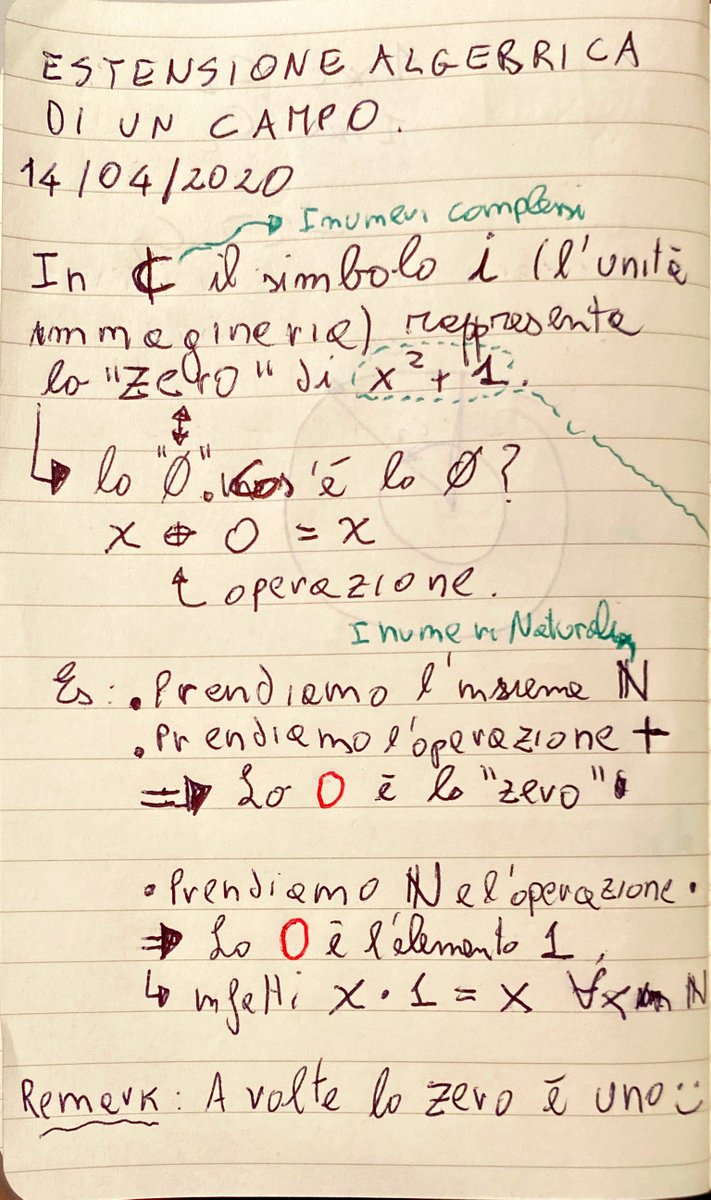 ESTENSIONE ALGEBRICA
DI UN CAMPO.
14/04/2020
I numeri complessi
In ℂ il simbolo i (l'unità
immaginaria) rappresenta
lo "zero" di x² + 1.
lo "0". Cos'è lo 0?
x ⊕ 0 = x
operazione.
I numeri Naturali
Es: . Prendiamo l'insieme ℕ
. Prendiamo l'operazione +
⇒ Lo 0 è lo "zero"
· Prendiamo ℕ e l'operazione ·
⇒ Lo 0 è l'elemento 1,
↳ infatti x · 1 = x ∀x in ℕ
Remark: A volte lo zero è uno :)